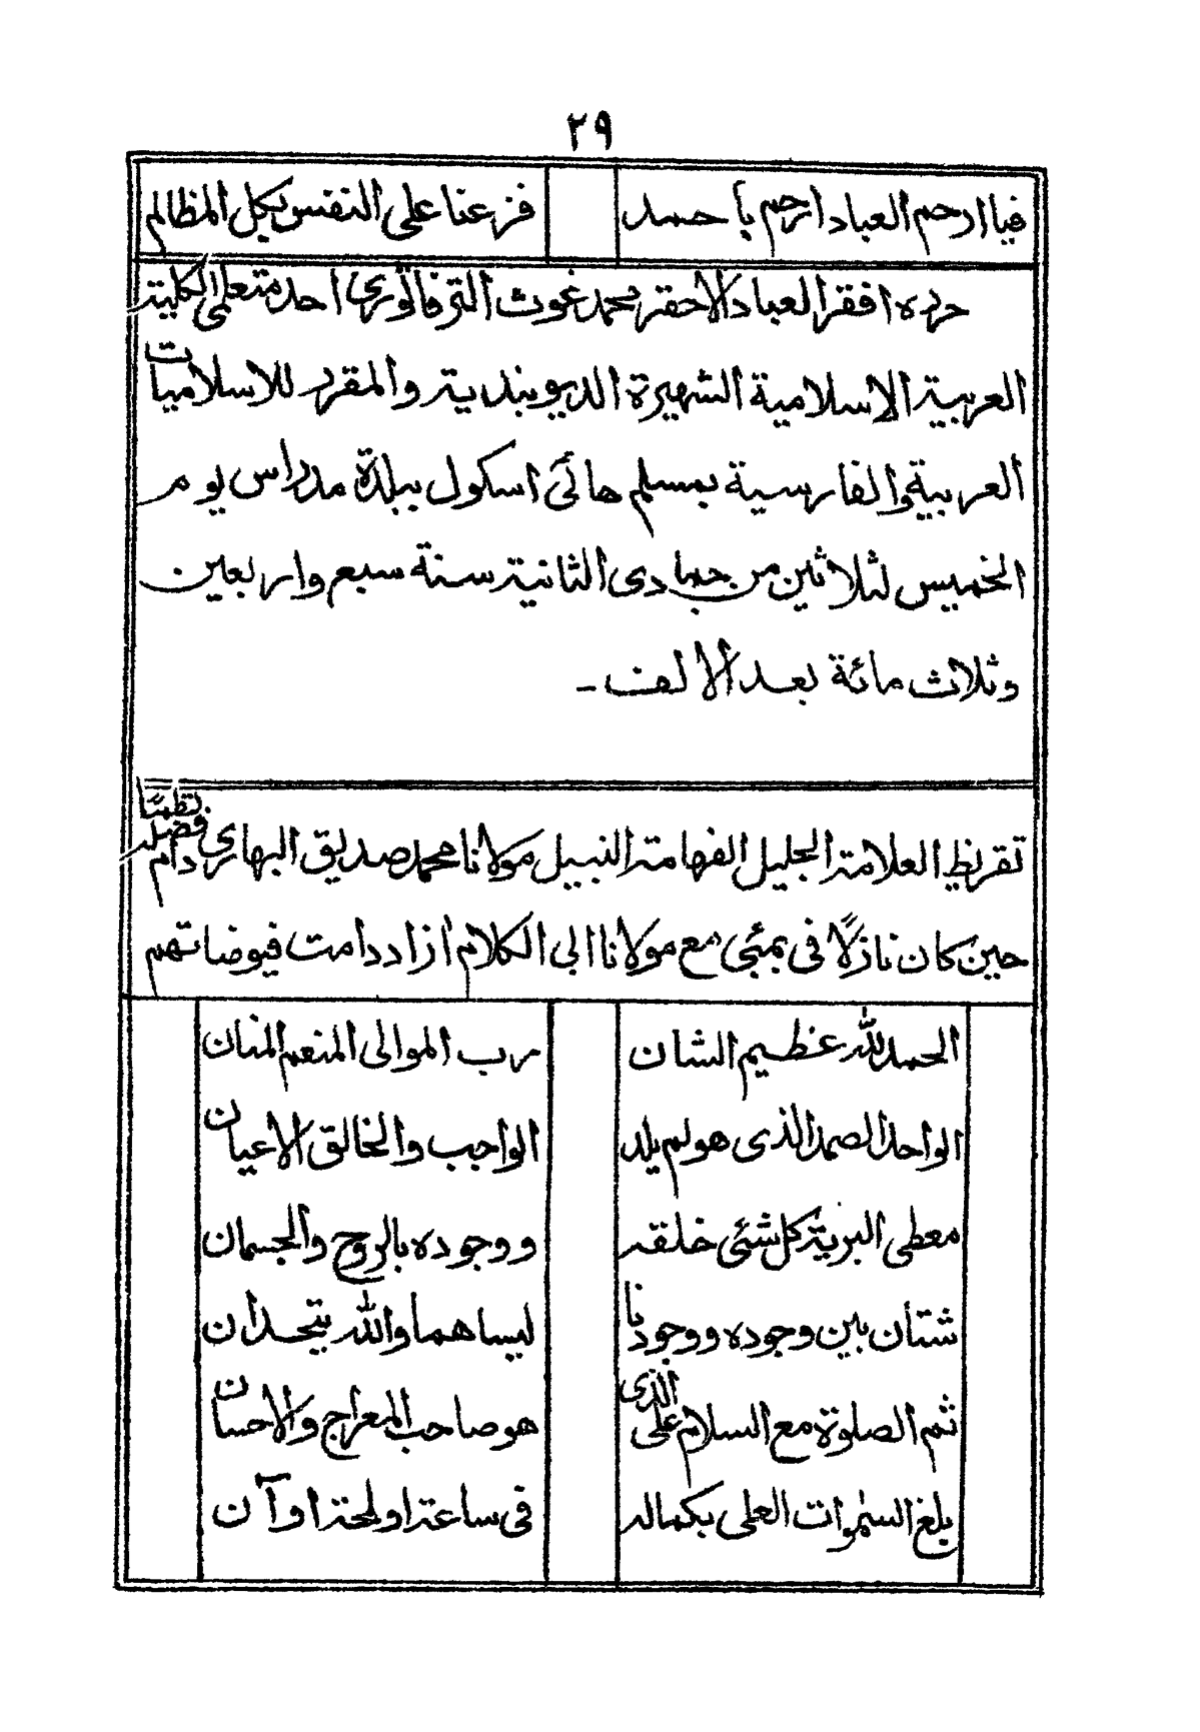 ٢٩
فيا ارحم العباد ارحم بأحمد فزعنا على النفس بكل المظالم
حرره افقر العباد الاحقر محمد غوث الترفاتوري احد متعلمي الكلية
العربية الاسلامية الشهيرة الديوبندية والمقرر للاسلاميات
العربية والفارسية بمسلم هائى اسكول ببلدة مدراس يوم
الخميس لثلاثين من جمادى الثانية سنة سبع واربعين
وثلاث مائة بعد الالف -
تقريظ العلامة الجليل الفهامة النبيل مولانا محمد صديق البهاري دام فضله نظمًا
حين كان نازلًا فى بمبئى مع مولانا ابى الكلام ازاد دامت فيوضاتهم
الحمد لله عظيم الشان رب الموالى المنعم المنان
الواحد الصمد الذى هو لم يلد الواجب والخالق الاعيان
معطى البرية كل شئى خلقه ووجوده بالروح والجسمان
شتان بين وجوده ووجودنا ليسا هما والله يتحدان
ثم الصلوة مع السلام على الذى هو صاحب المعراج والاحسان
بلغ السمٰوات العلى بكماله فى ساعة او لمحة او آن